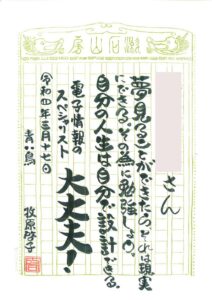 漱石山房
さん
夢見ることができたらそれは現実
にできる。その為に勉強しよう。
自分の人生は自分で設計できる。
大丈夫！
電子情報の
スペシャリスト
令和四年三月十七日
青い鳥
牧原啓子